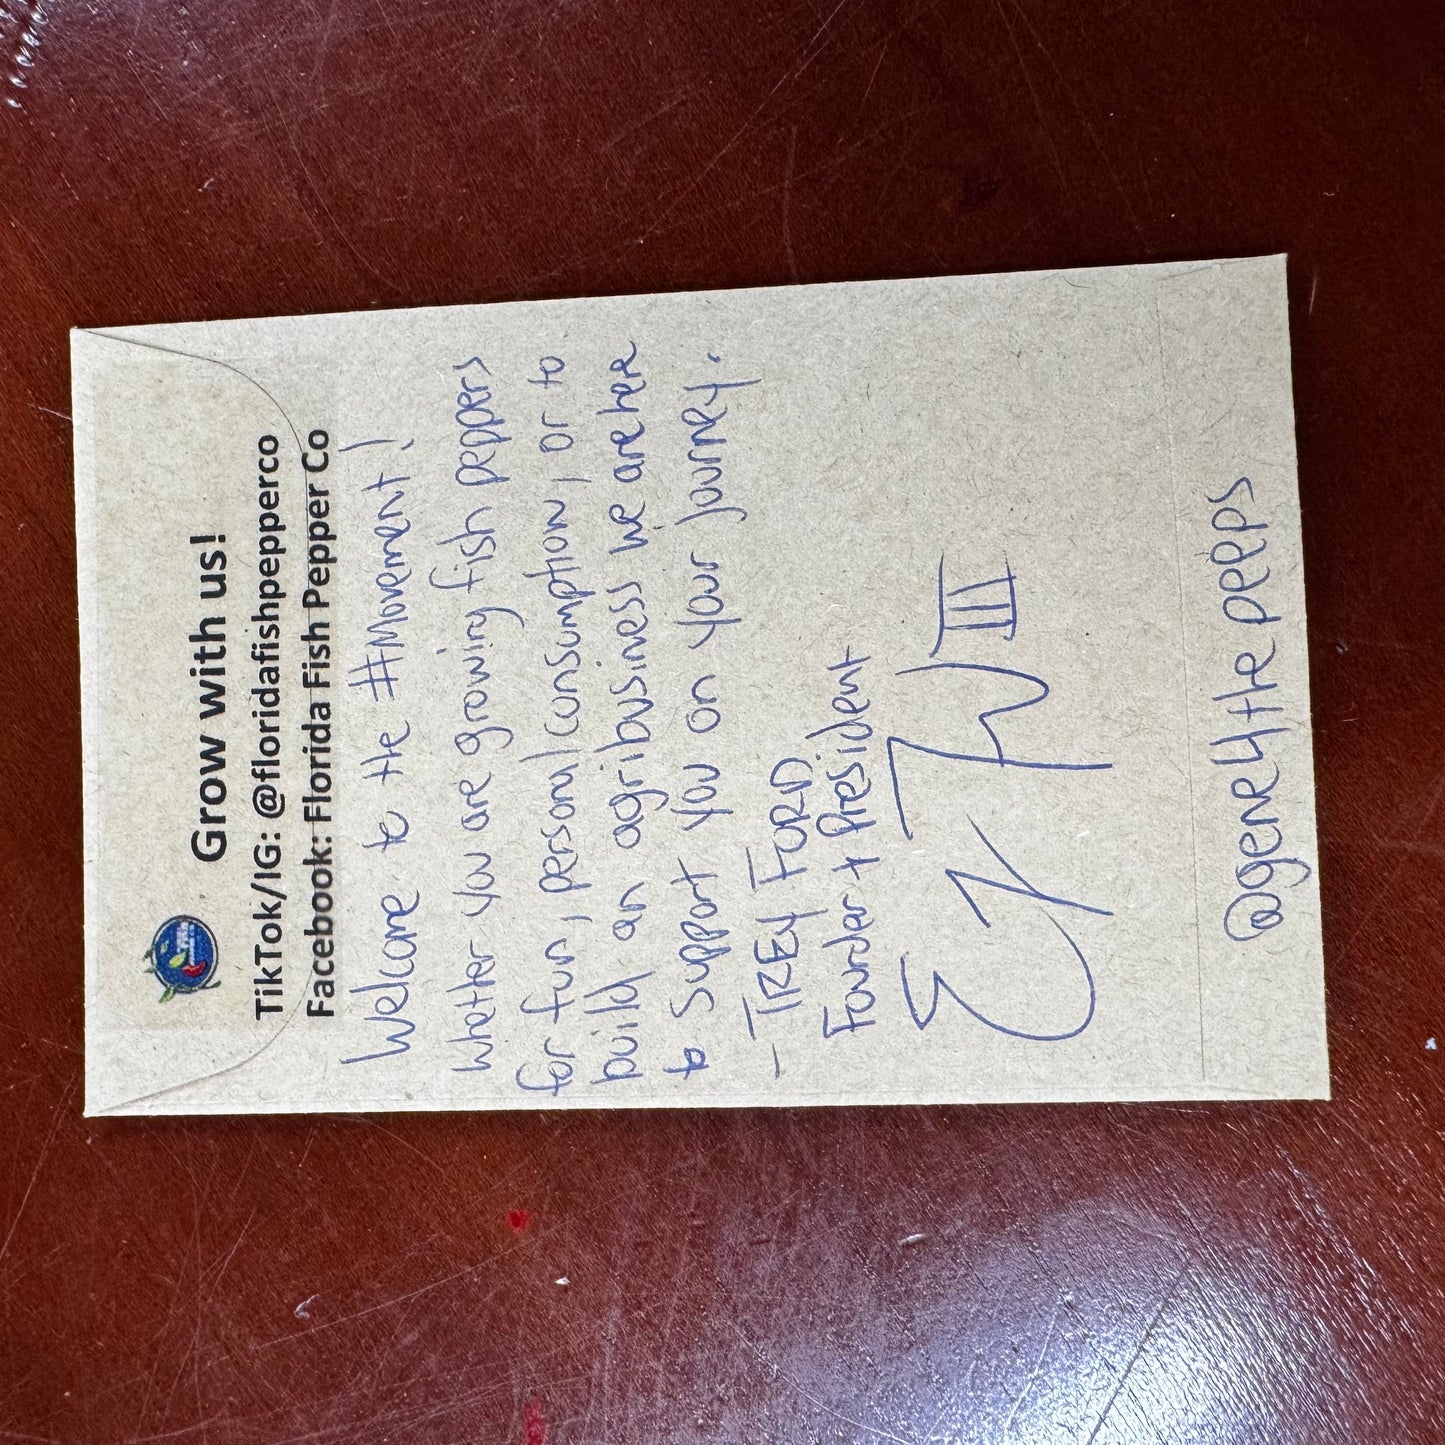 Grow with us!
TikTok/IG: @floridafishpepperco
Facebook: Florida Fish Pepper Co
Welcome to the #Movement!
Whether you are growing fish peppers
for fun, personal consumption, or to
build an agribusiness we are here
to support you on your journey.
- TREY FORD
Founder + President
III